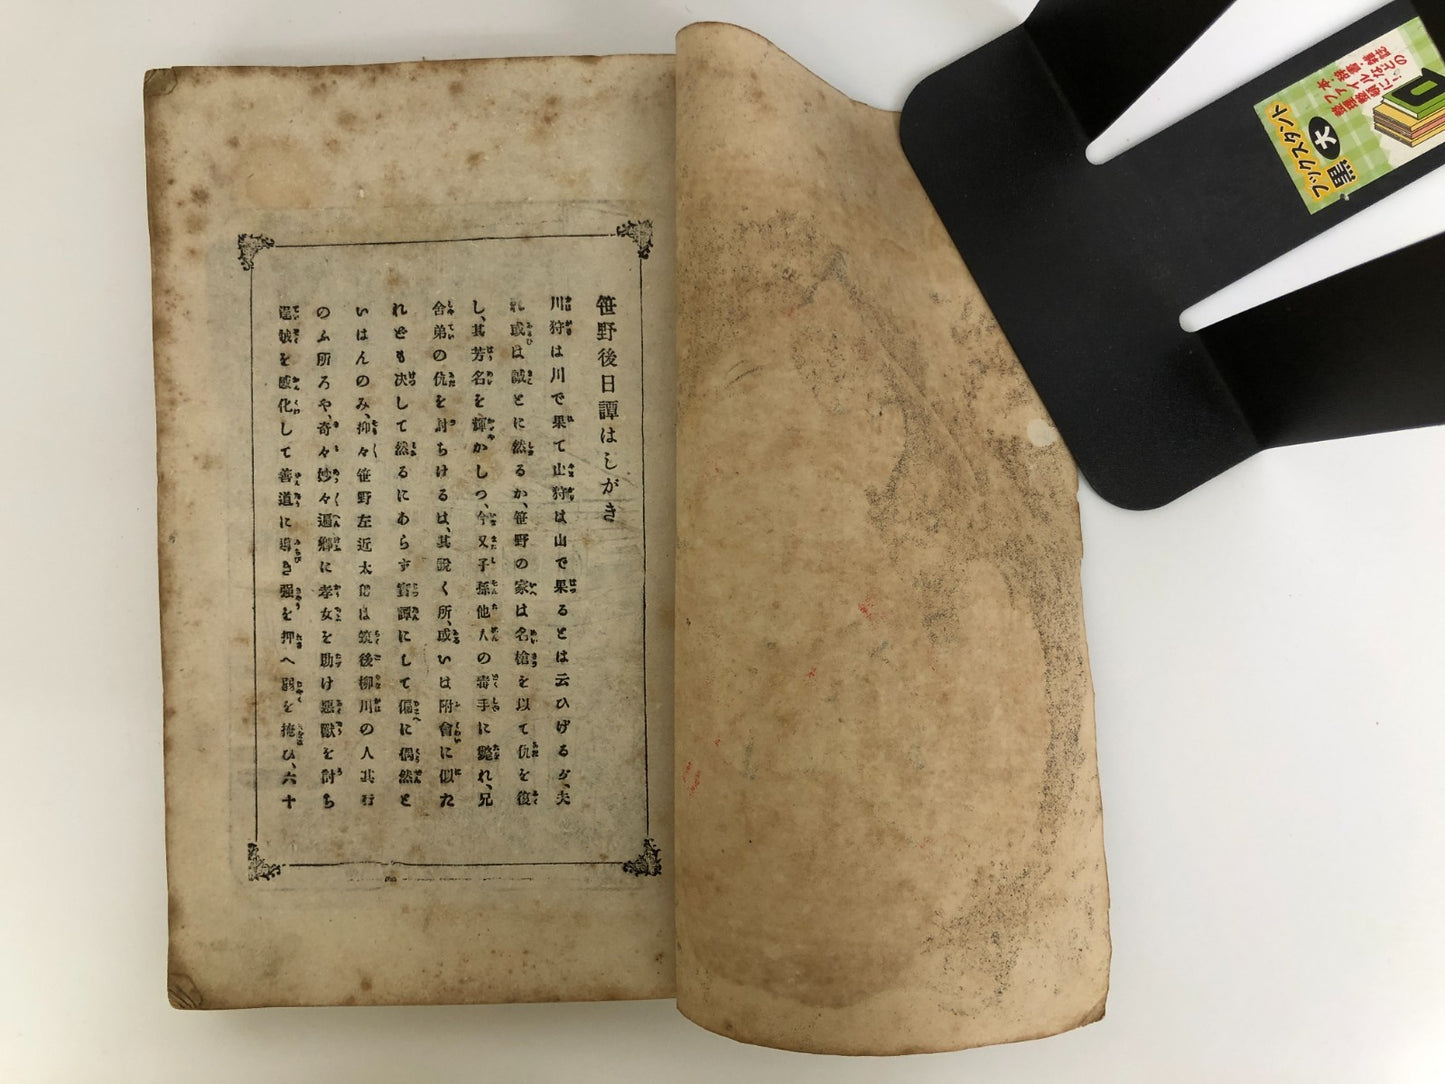 笹野後日譚はしがき
川狩は川で果て山狩は山で果るとは云ひけるが、夫
れ或は誠とに然るか、笹野の家は名槍を以て仇を復
し、其芳名を輝かしつ、今又子孫他人の毒手に斃れ、兄
舍弟の仇を討ちけるは、其說く所、或いは附會に似た
れども决して然るにあらす實譚にして偏に偶然と
いはんのみ、抑々笹野左近太郎は筑後柳川の人其行
のふ所ろや、奇々妙々遍鄕に孝女を助け惡獸を討ち
を感化して善道に導き强を押へ弱を掩ひ、六十
ブックスタンド
黒 大